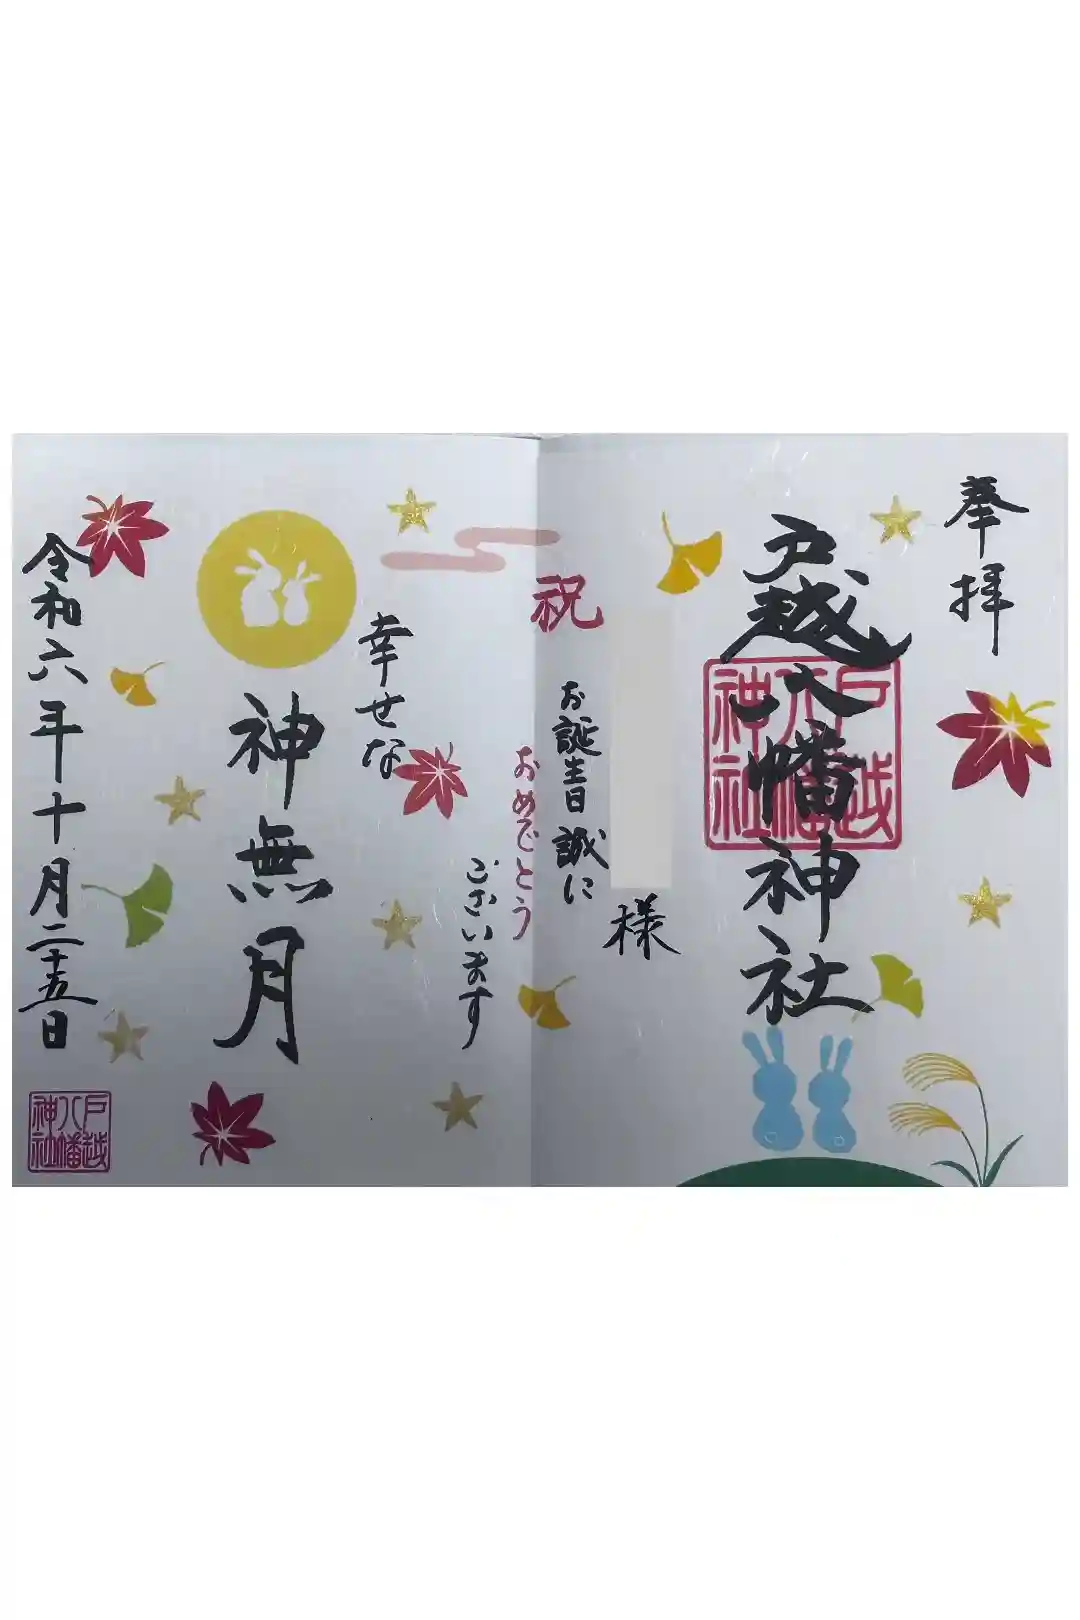 奉拝
戸越八幡神社
戸越
八幡
神社
様
祝
お誕生日誠に
おめでとう
ございます
幸せな
神無月
令和六年十月二十五日
戸越
八幡
神社